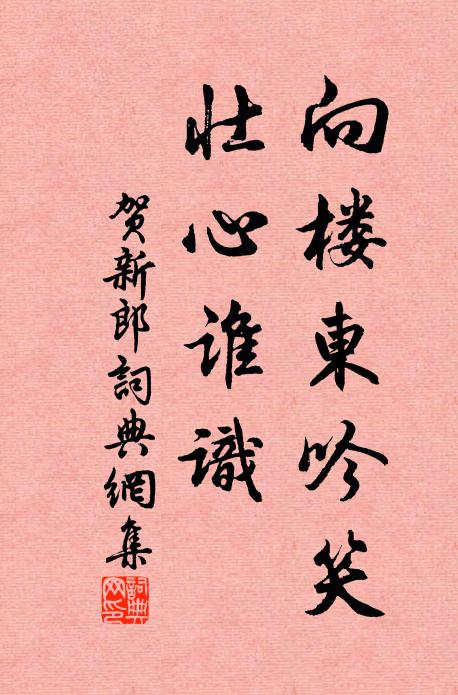 向楼東吟笑
壮心誰識
贺新郎詞典網集
詞典網印